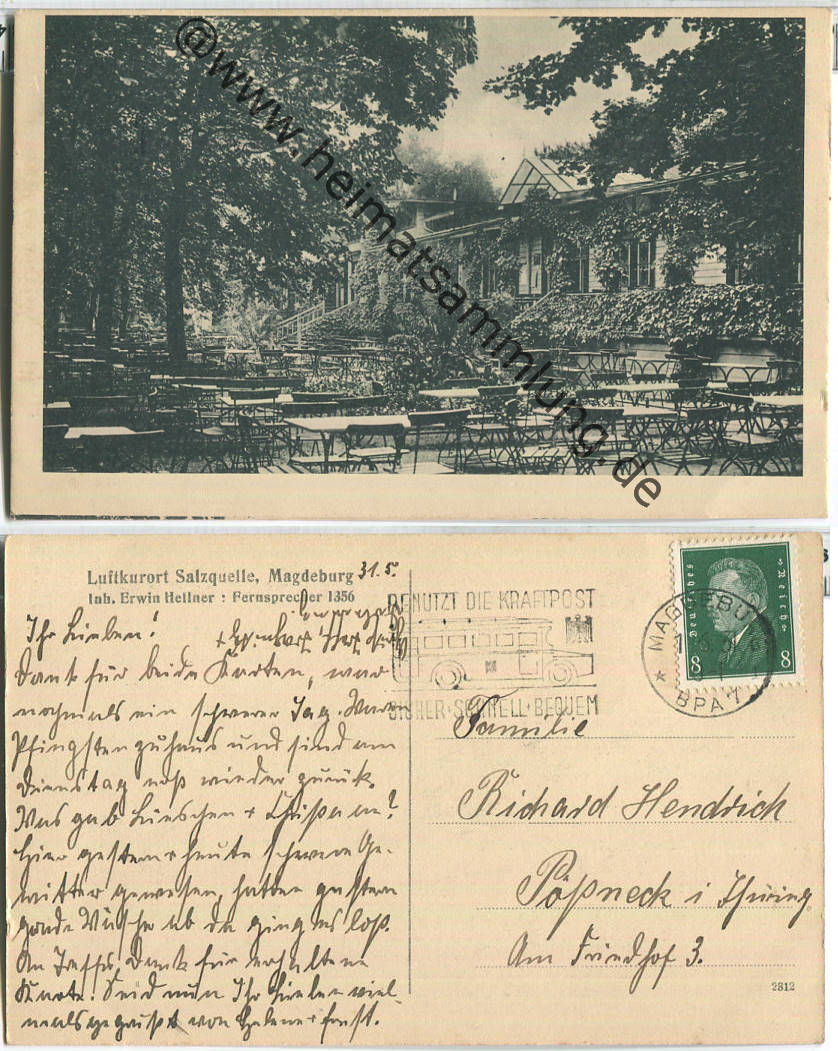 @www.heimatsammlung.de
Luftkurort Salzquelle, Magdeburg 31.5.
Inh. Erwin Hellner : Fernsprecher 1356
Ihr Lieben!
Dank für beide Karten, war
nochmals ein schwerer Tag. Waren
Pfingsten zuhaus und sind am
Dienstag erst wieder zurück.
Was gab Lieschen +
Hier gestern + heute schwere Ge-
witter gewesen, hatten gestern
grade Wäsche ab da ging es los.
An Dank für erhaltene
Karte. Seid nun Ihr Lieben viel-
mals gegrüßt von Helene + Ernst.
BENUTZT DIE KRAFTPOST
SICHER·SCHNELL·BEQUEM
MAGDEBURG
* BPA 1
Deutsches Reich
8 8
Familie
Richard Hendrich
Pößneck i Thüring.
Am Friedhof 3.
2812